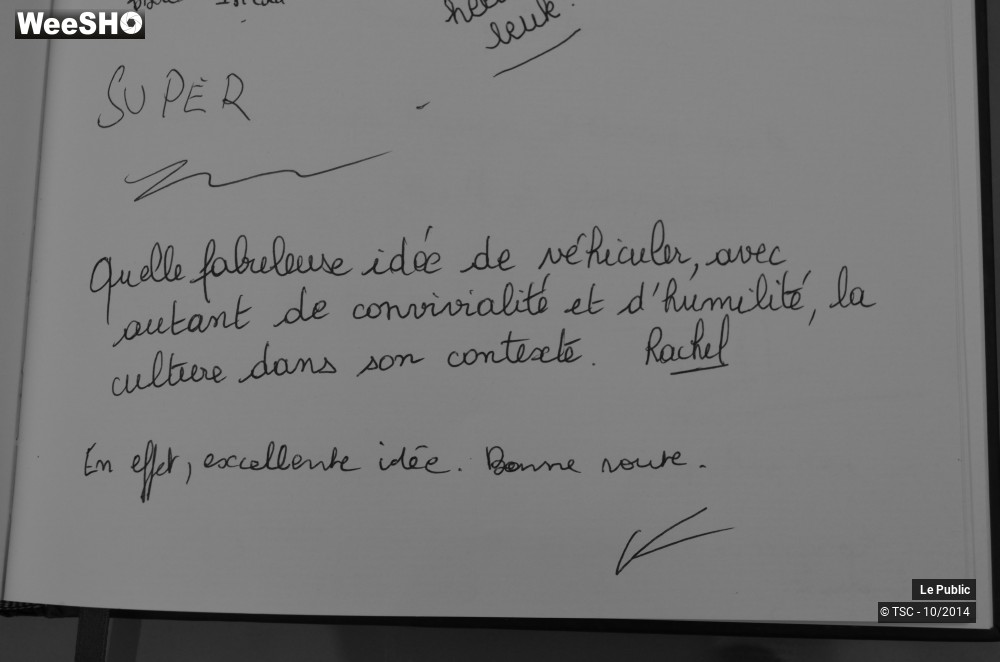 WeeSHO
leuk.
SUPER
Quelle fabuleuse idée de véhiculer, avec
autant de convivialité et d'humilité, la
culture dans son contexte. Rachel
En effet, excellente idée. Bonne route.
Le Public
© TSC - 10/2014